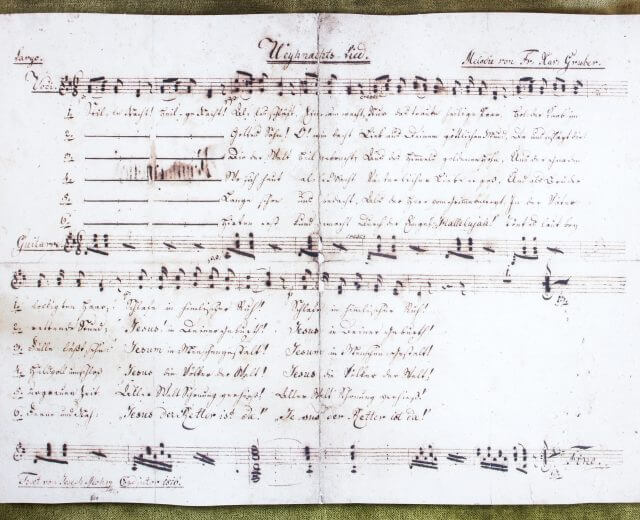 Largo. Weyhnachts-Lied. Melodie von Fr. Xav. Gruber.
Voci.
1. Stille Nacht! Heilige Nacht! Alles schläft, Einsam wacht, Nur das traute heilige Paar, Holder Knab im
2. Gottes Sohn! O! wie lacht Lieb aus deinem göttlichen Mund, da uns schlägt die
3. Die der Welt Heil gebracht, Aus des Himmels goldnen Höhn, Aus der Gnaden
4. Wo sich heut alle Macht Väterlicher Liebe ergoß, Und als Bruder
5. Lange schon uns bedacht, Als der Herr vom Grimme befreyt, In der Väter
6. Hirten erst kund gemacht Durch der Engel "Hallelujah! Tönt es laut bey
Guitarre.
1. lockigten Haar; Schlafe in himlischer Ruh! Schlafe in himlischer Ruh!
2. rettende Stund; Jesus in deiner Geburt! Jesus in deiner Geburt!
3. Fülle läßt sehn: Jesum in Menschengestalt! Jesum in Menschengestalt!
4. Huldvoll umschloß Jesus die Völker der Welt! Jesus die Völker der Welt!
5. urgrauer Zeit Aller Welt Schonung verhieß! Aller Welt Schonung verhieß!
6. Ferne und Nah: "Jesus der Retter ist da!" "Jesus der Retter ist da!"
Text von Joseph Mohr Coadjutor 1816.